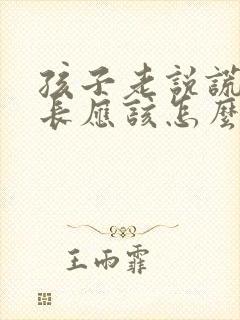 孩子老説謊
長應該怎麼
王雨霏